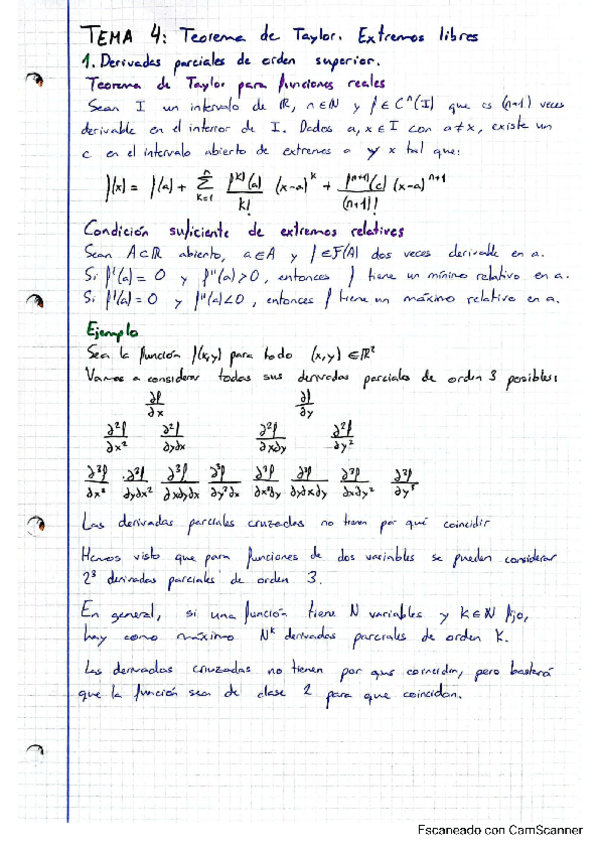 TEMA 4: Teorema de Taylor. Extremos libres
1. Derivadas parciales de orden superior.
Teorema de Taylor para funciones reales
Sean I un intervalo de ℝ, n∈ℕ y f∈Cⁿ(I) que es (n+1) veces
derivable en el interior de I. Dados a, x∈I con a≠x, existe un
c en el intervalo abierto de extremos a y x tal que:
f(x) = f(a) + Σ_{k=1}^{n} f^{k)}(a)/k! (x-a)^k + f^{n+1)}(c)/(n+1)! (x-a)^{n+1}
Condición suficiente de extremos relativos
Sean A⊂ℝ abierto, a∈A y f∈F(A) dos veces derivable en a.
Si f'(a) = 0 y f''(a)>0, entonces f tiene un mínimo relativo en a.
Si f'(a) = 0 y f''(a)<0, entonces f tiene un máximo relativo en a.
Ejemplo
Sea la función f(x,y) para todo (x,y) ∈ℝ²
Vamos a considerar todas sus derivadas parciales de orden 3 posibles:
∂f/∂x ∂f/∂y
∂²f/∂x² ∂²f/∂y∂x ∂²f/∂x∂y ∂²f/∂y²
∂³f/∂x³ ∂³f/∂y∂x² ∂³f/∂x∂y∂x ∂³f/∂y²∂x ∂³f/∂x²∂y ∂³f/∂y∂x∂y ∂³f/∂x∂y² ∂³f/∂y³
Las derivadas parciales cruzadas no tienen por qué coincidir
Hemos visto que para funciones de dos variables se pueden considerar
2³ derivadas parciales de orden 3.
En general, si una función tiene N variables y K∈ℕ fijo,
hay como máximo N^k derivadas parciales de orden K.
Las derivadas cruzadas no tienen por que coincidir, pero bastará
que la función sea de clase 2 para que coincidan.
Escaneado con CamScanner